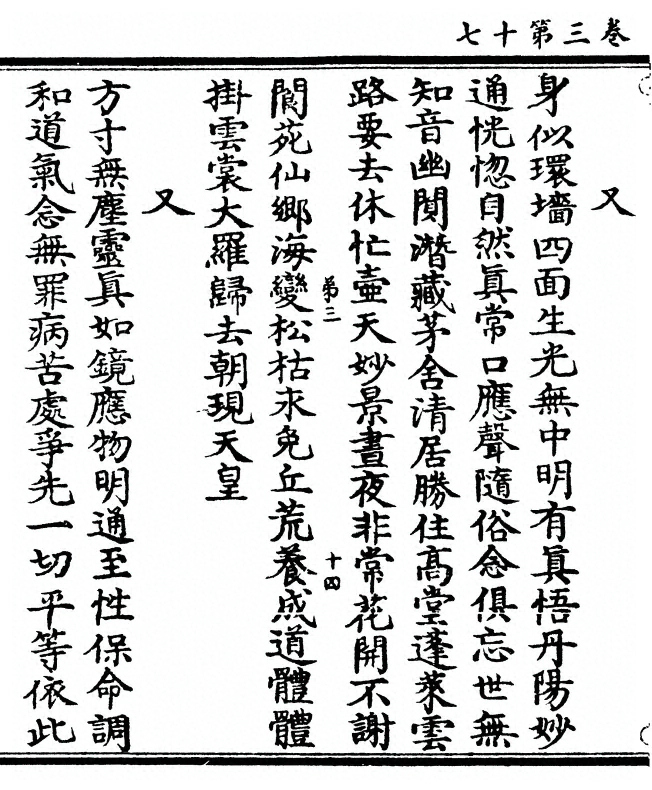 七十第三卷
又
身似環墻四面生光無中明有真悟丹陽妙
通恍惚自然真常口應聲隨俗念俱忘世無
知音幽閴潛藏茅舍清居勝住高堂蓬萊雲
路要去休忙壺天妙景晝夜非常花開不謝
第三
十四
閬苑仙鄉海變松枯未免丘荒養成道體體
掛雲裳大羅歸去朝現天皇
又
方寸無塵靈真如鏡應物明通至性保命調
和道氣念無罪病苦處爭先一切平等依此